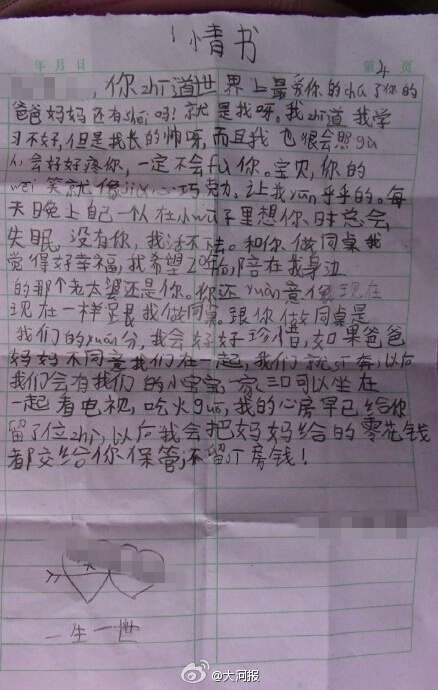 情书
年 月 日
第 4 页
,你zhī道世界上最爱你的chú了你的
爸爸妈妈还有shéi吗!就是我呀。我zhī道我学
习不好,但是我长的帅呀,而且我也很会照gù
人,会好好疼你,一定不会fù你。宝贝,你的
wēi笑就像 巧克力,让我yūn乎乎的。每
天晚上自己一人在小wū子里想你,时总会
失眠,没有你,我活不 。和你做同桌我
觉得好幸福,我希望20年后,陪在我身边
的那个老太婆还是你。你还yuàn意像现在
现在一样 跟我做同桌。跟你做同桌是
我们的yuán分,我会好好珍惜,如果爸爸
妈妈不同意我们在一起,我们就 奔,以后
我们会有我们的小宝宝,一家三口可以坐在
一起看电视,吃火guō,我的心房早已给你
留了位zhì,以后我会把妈妈给的零花钱
都交给你保管,不留 房钱!
一生一世
@大河报